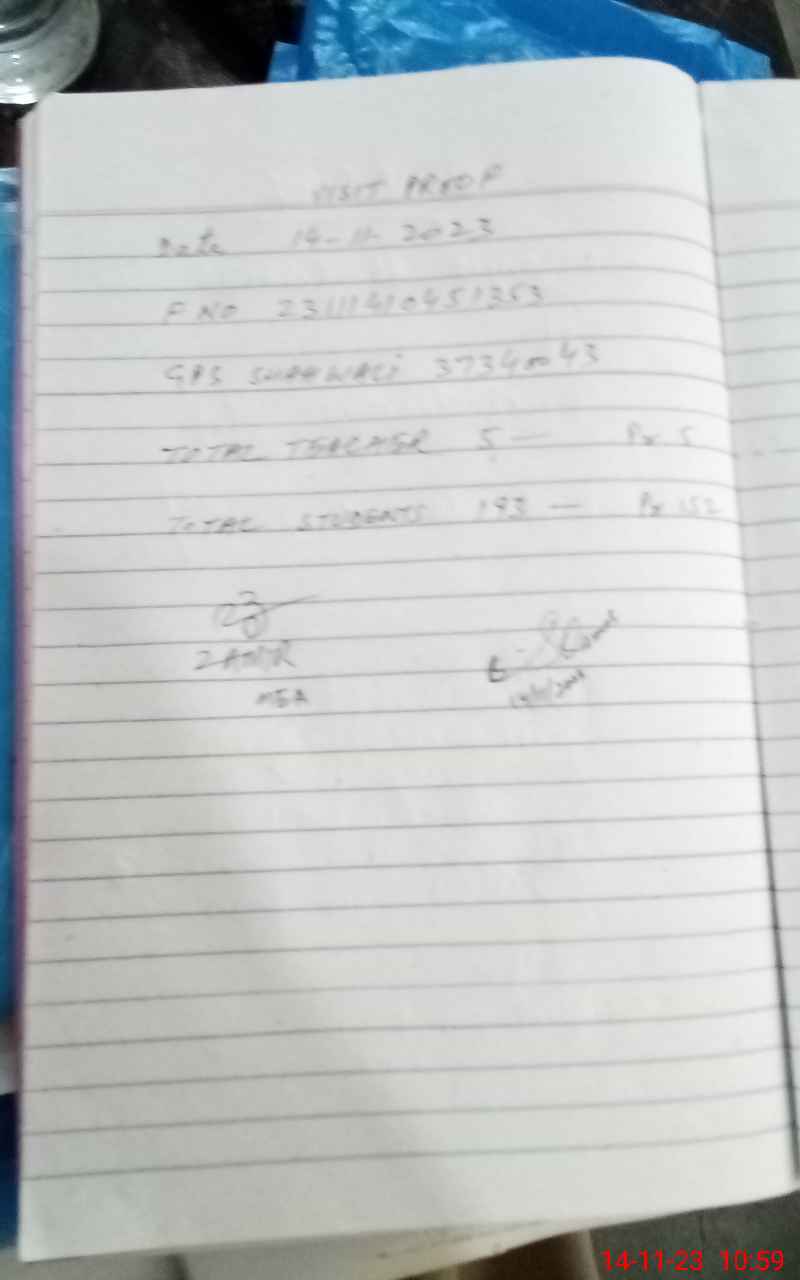 VISIT PROOF
Date 14-11-2023
F NO 23111410451353
GPS SHAHWALI 37340043
TOTAL TEACHER 5 — Pr 5
TOTAL STUDENTS 193 — Pr 152
ZAMIR
MEA
14-11-23 10:59